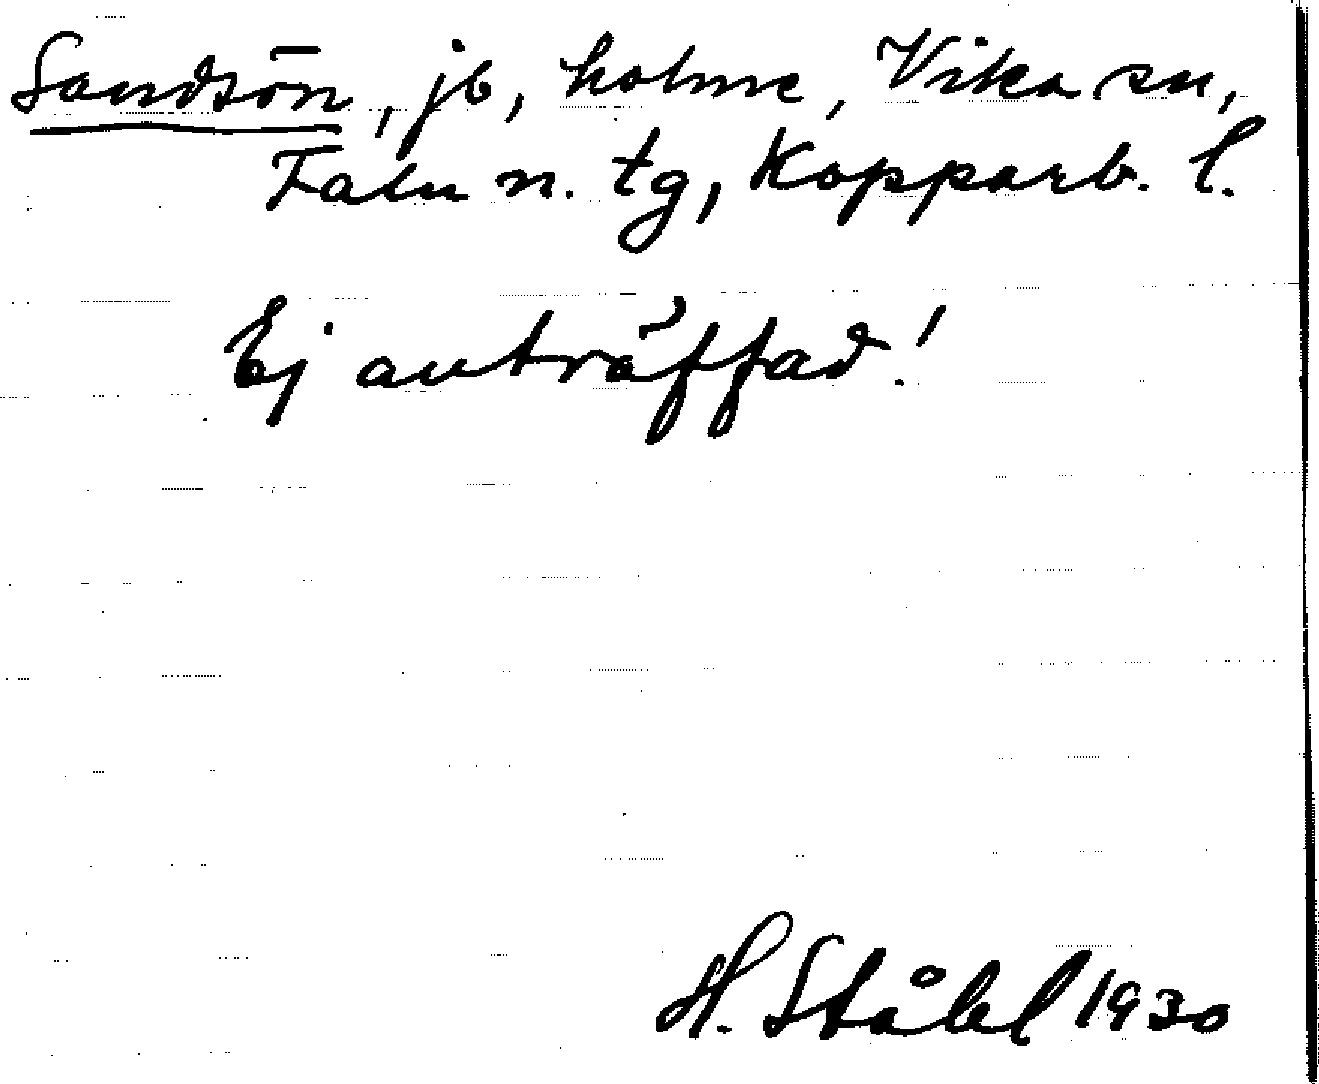 Sandsön, jb, holme, Vika sn,
Falu n. tg, Kopparb. l.
Ej anträffad!
H. Ståhl 1930